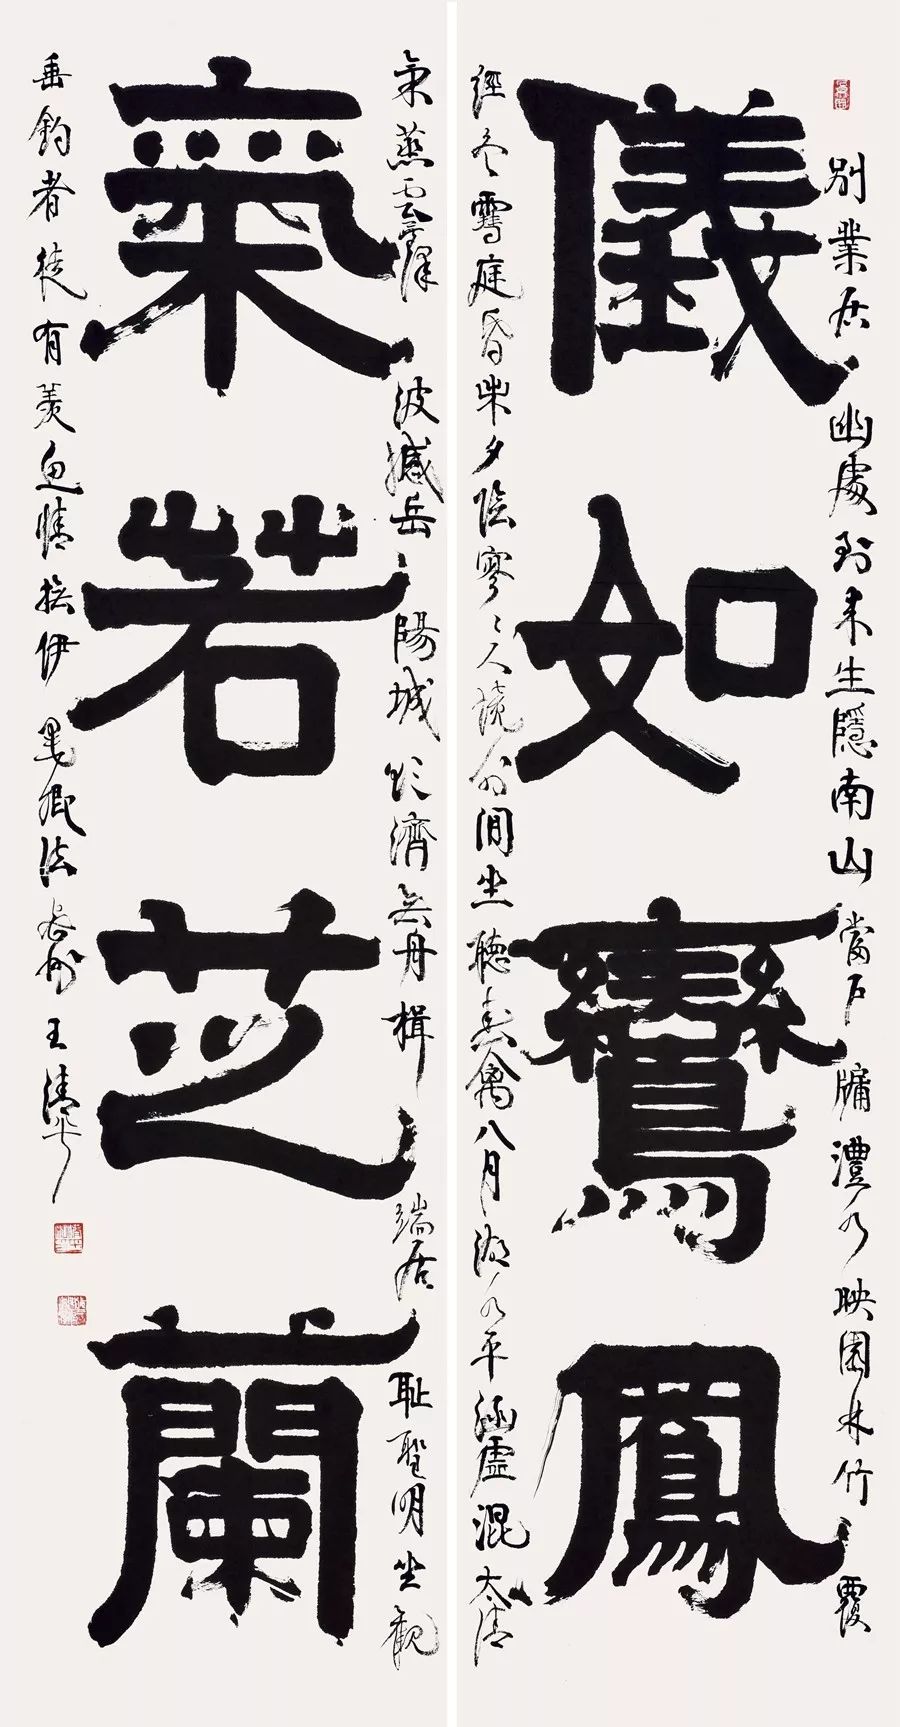 別業居幽處到来生隱南山當戶牖灃水映園林竹覆
儀如鸞鳳
經冬雪庭昏柴夕陰寥〻人境外閒坐聽春禽八月湖水平涵虛混太清
氣蒸雲夢澤波撼岳陽城欲濟無舟楫端居恥聖明坐觀
氣若芝蘭
垂釣者徒有羨魚情伊墨卿法王清平